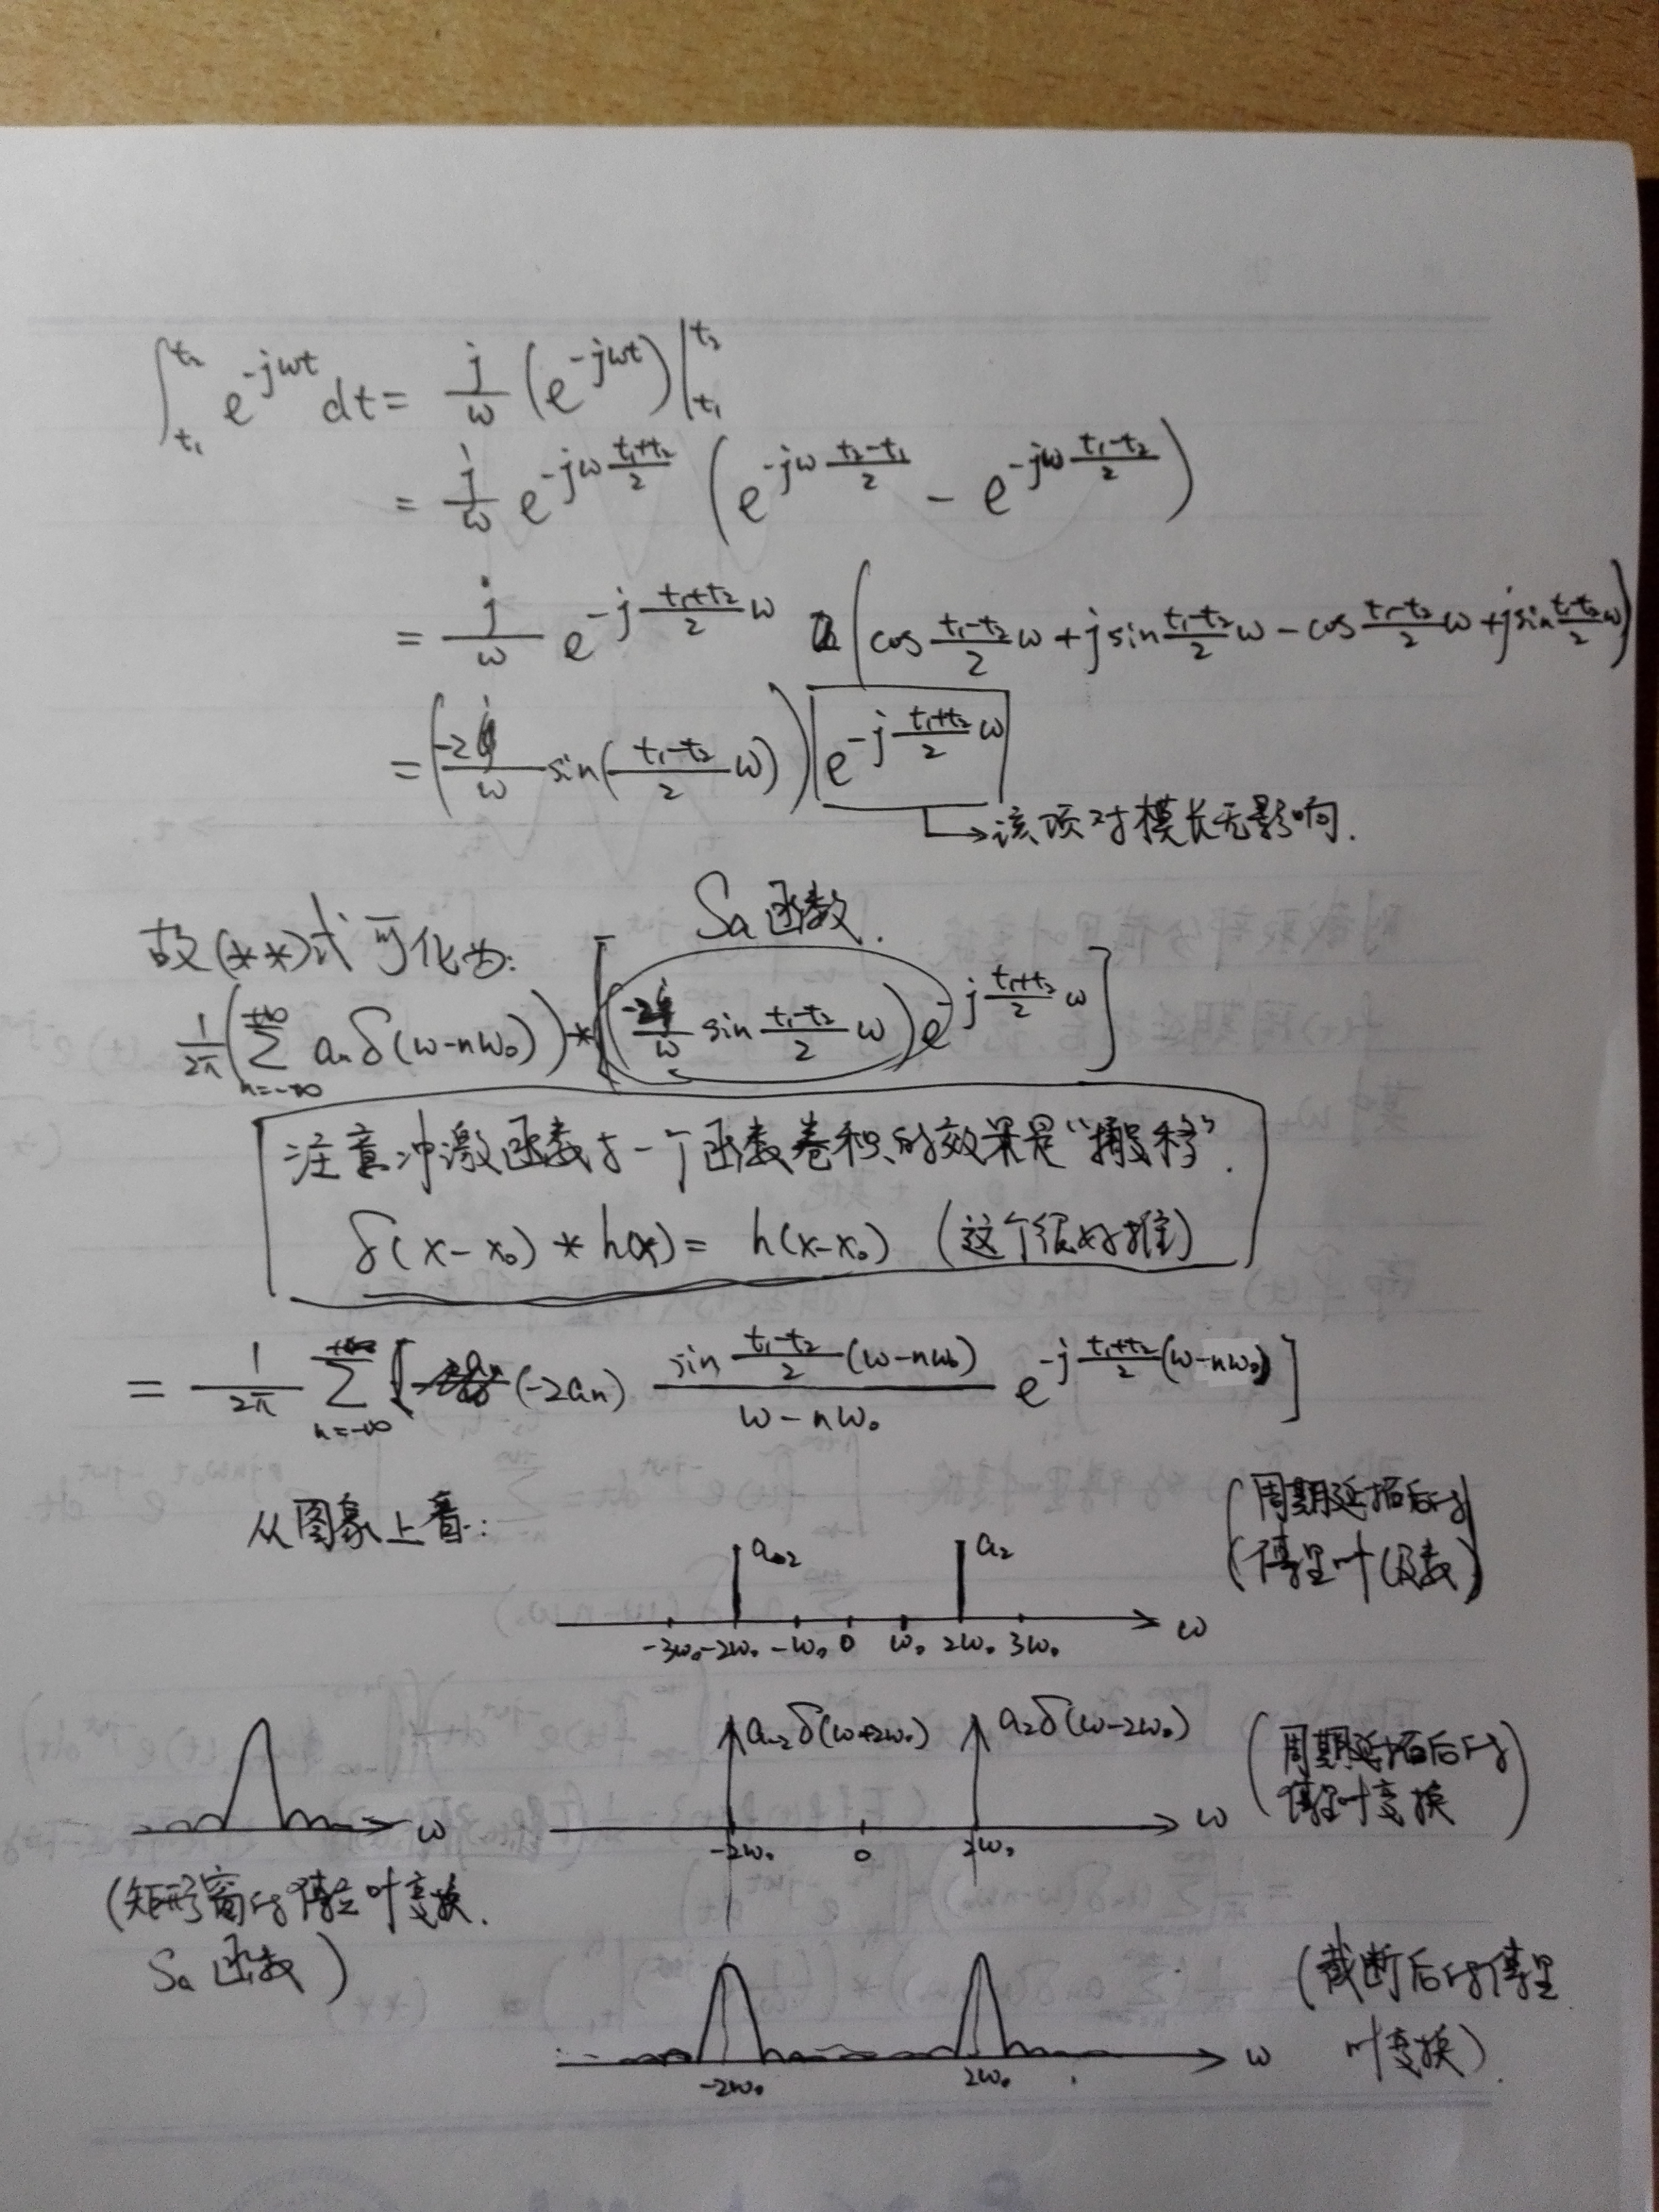 ∫_{t₁}^{t₂} e^{-jωt} dt = j/ω (e^{-jωt})|_{t₁}^{t₂}
= j/ω e^{-jω (t₁+t₂)/2} (e^{-jω (t₂-t₁)/2} - e^{-jω (t₁-t₂)/2})
= j/ω e^{-j (t₁+t₂)/2 ω} (cos (t₁-t₂)/2 ω + j sin (t₁-t₂)/2 ω - cos (t₁-t₂)/2 ω + j sin (t₁-t₂)/2 ω)
= (-2/ω sin((t₁-t₂)/2 ω)) e^{-j (t₁+t₂)/2 ω}
→该项对模长无影响.
Sa 函数.
故(**)式可化为:
1/2π (∑_{n=-∞}^{+∞} aₙ δ(ω-nω₀)) * [(-2/ω sin (t₁-t₂)/2 ω) e^{-j (t₁+t₂)/2 ω}]
注意冲激函数与一个函数卷积的效果是“搬移”.
δ(x-x₀) * h(x) = h(x-x₀) (这个很好推)
= 1/2π ∑_{n=-∞}^{+∞} [(-2aₙ) sin (t₁-t₂)/2 (ω-nω₀) / (ω-nω₀) e^{-j (t₁+t₂)/2 (ω-nω₀)}]
从图象上看:
a₋₂ a₂
(周期延拓后的
傅里叶级数)
-3ω₀ -2ω₀ -ω₀ 0 ω₀ 2ω₀ 3ω₀ ω
a₋₂δ(ω+2ω₀) a₂δ(ω-2ω₀)
(周期延拓后的
傅里叶变换)
ω
-2ω₀ 0 2ω₀ ω
(矩形窗的傅立叶变换.
Sa 函数)
(截断后的傅里
叶变换).
-2ω₀ 2ω₀ ω